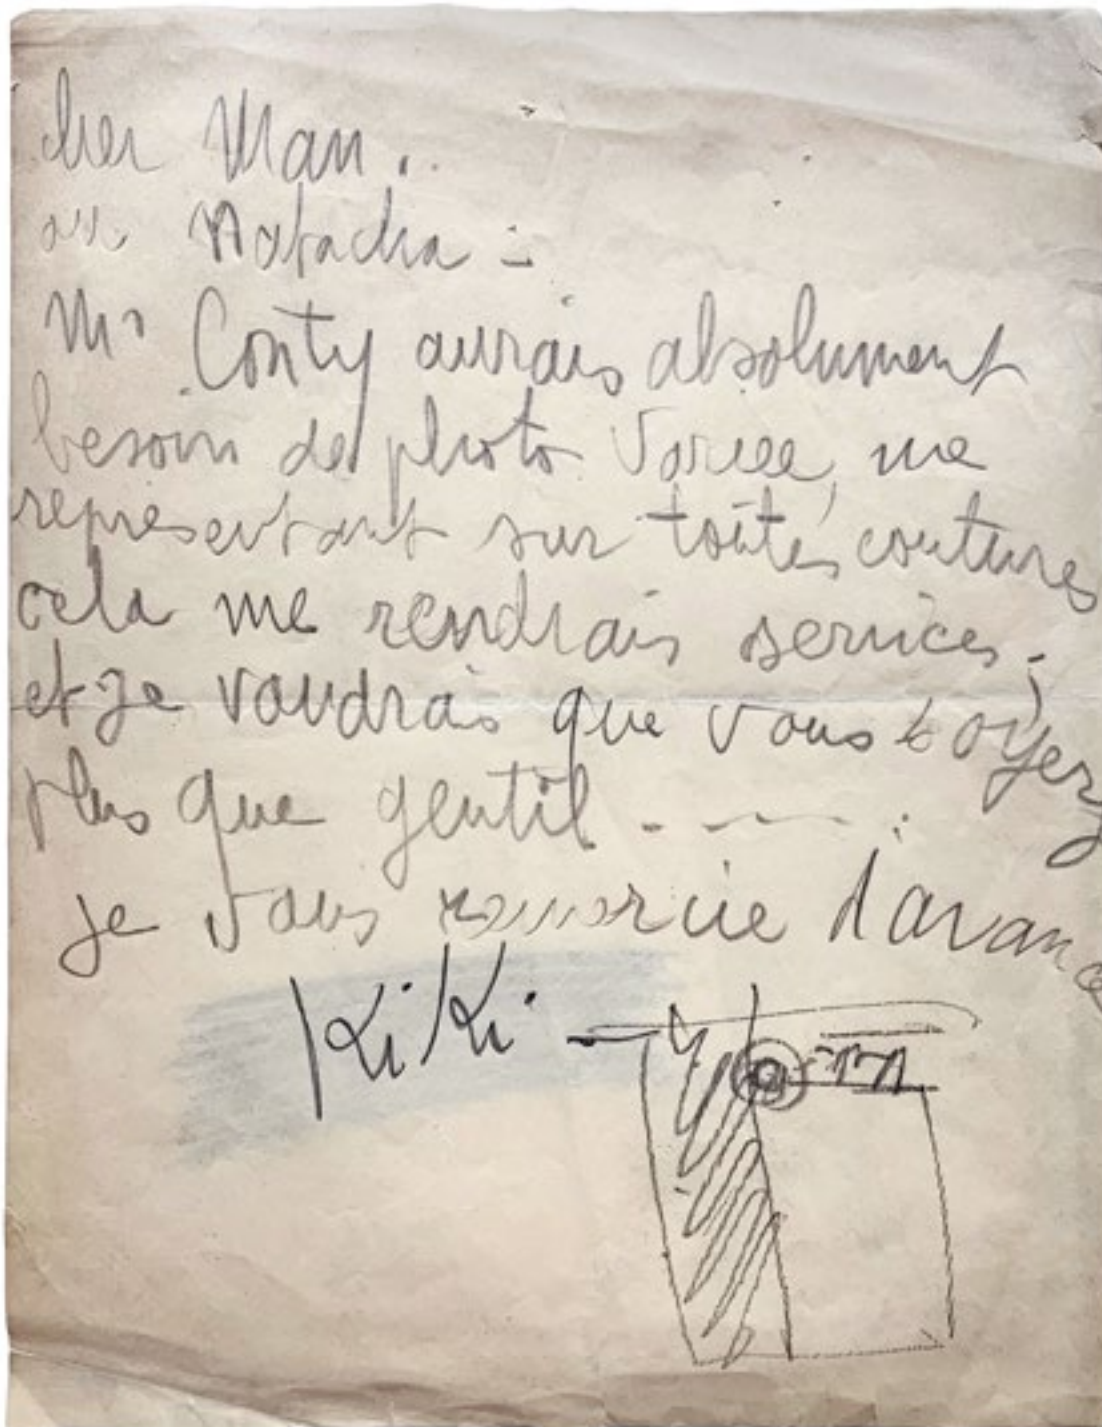 cher Man.
ou Natacha -
Mr Conty aurais absolument
besoin de photo variee, me
representant sur toutes coutures
cela me rendrais services.
et je voudrais que vous soyez
plus que gentil - - - .
je vous remercie d'avance
Kiki -